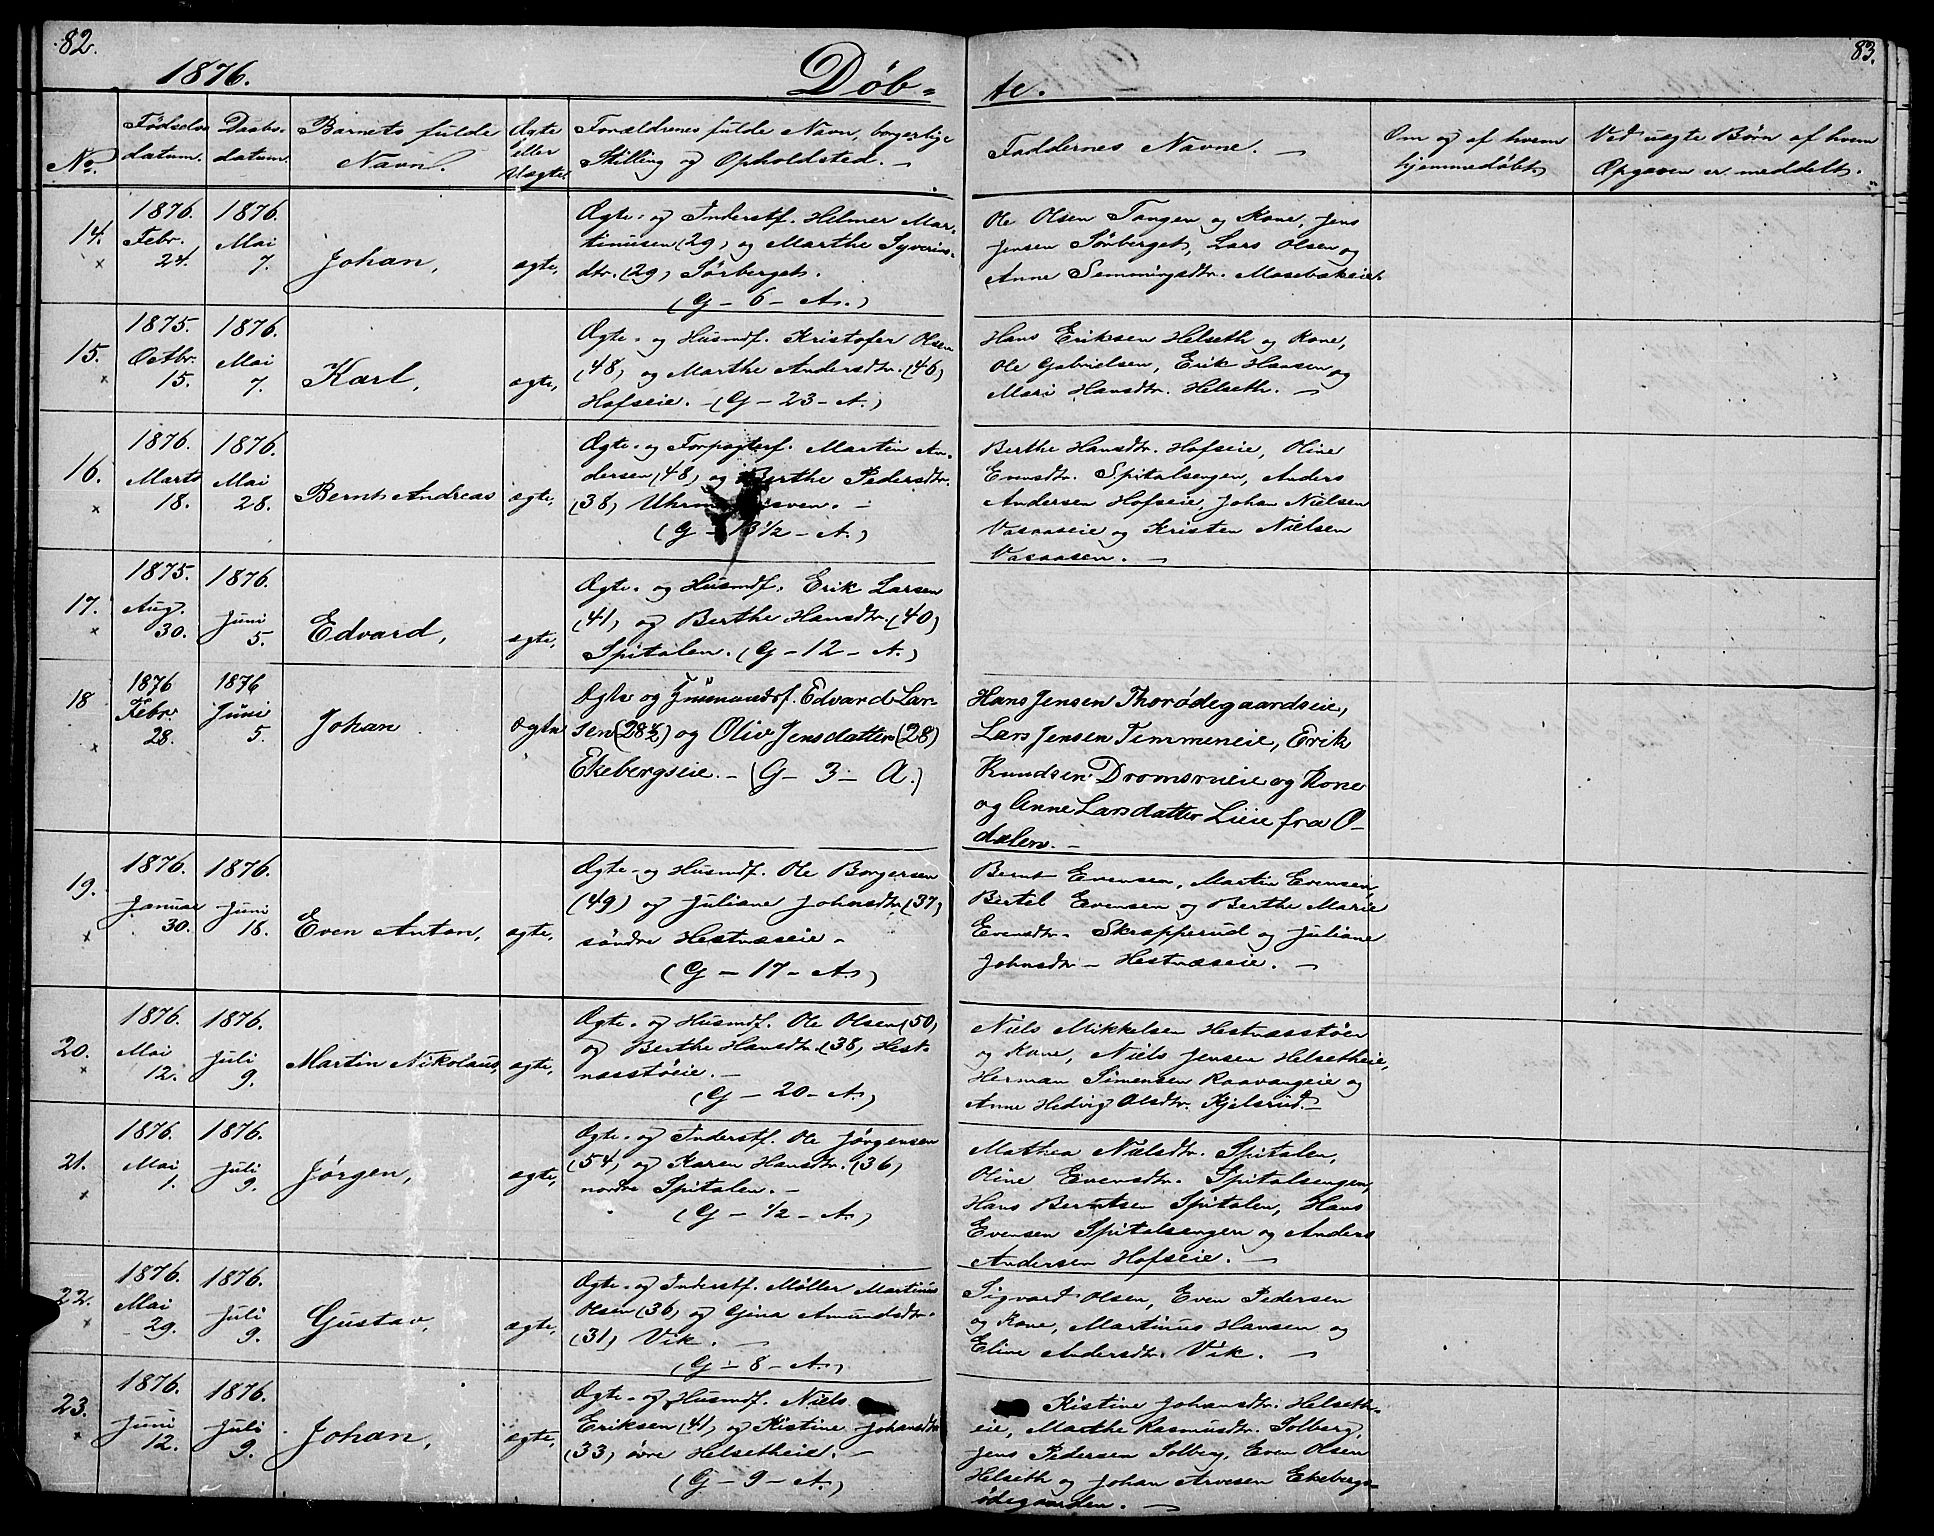 82.
83.
1876.
Døb-
te.
No.
Fødsels-
datum.
Daabs-
datum.
Barnets fulde
Navn.
Ægte
eller
Uægte.
Forældrenes fulde Navn, borgerlige
Stilling og Opholdsted. —
Faddernes Navne. —
Om og af hvem
hjemmedøbt.
Ved uægte Børn af hvem
Opgaven er meddelt.
14.
1876.
Febr.
24.
1876.
Mai
7.
Johan,
ægte,
Ægte- og Inderstf. Helmer Mar-
tinusen (29) og Marthe Syverins-
dtr. (29) Sørberget.
(G - 6 - A.)
Ole Olsen Tangen og Kone, Jens
Jensen Sørberget, Lars Olsen og
Anne Semmingsdtr. Mosebækeie.
15.
1875.
Octbr.
15.
1876.
Mai
7.
Karl,
ægte,
Ægte- og Husmdf. Kristofer Olsen
(48) og Marthe Andersdtr. (46)
Hofseie. - (G - 23 - A.)
Hans Eriksen Helseth og Kone,
Ole Gabrielsen, Erik Hansen og
Mari Hansdtr. Helseth. —
16.
1876.
Marts
18.
1876.
Mai
28.
Bernt Andreas
ægte,
Ægte- og Forpagterf. Martin An-
dersen (48) og Berthe Pedersdtr.
(38)
(G - 13½ - A.)
Berthe Hansdtr. Hofseie, Oline
Evensdtr. Spitalsengen, Anders
Andersen Hofseie, Johan Nielsen
Vasaaseie og Kristen Nielsen
Vasaasen. —
17.
1875.
Aug.
30.
1876.
Juni
5.
Edvard,
ægte,
Ægte- og Husmdf. Erik Larsen
(41) og Berthe Hansdtr. (40)
Spitalen. (G - 12 - A.)
18
1876
Febr.
28.
1876
Juni
5.
Johan
Ægte
Ægte og Husmandsf. Edvard Lar-
sen (28½) og Olive Jensdatter (28)
Ekebergseie. - (G - 3 - A.)
Hans Jensen Thorødegaardseie,
Lars Jensen Timmeneie, Erik
Knudsen Dromsrueie og Kone
og Anne Larsdatter Lieie fra O-
dalen. -
19.
1876.
Januar
30.
1876.
Juni
18.
Even Anton,
ægte,
Ægte- og Husmdf. Ole Borgersen
(49) og Juliane Johnsdtr. (37)
søndre Hestnæseie -
(G - 17 - A.)
Bernt Evensen, Martin Evensen,
Bertel Evensen og Berthe Marie
Evensdtr. Skrapperud og Juliane
Johnsdtr - Hestnæseie. —
20.
1876.
Mai
12.
1876.
Juli
9.
Martin Nikolaus,
ægte,
Ægte- og Husmdf. Ole Olsen (50)
og Berthe Hansdtr. (38) Hest-
næsstøeie. -
(G - 20 - A.)
Niels Mikkelsen Hestnæsstøen
og Kone, Niels Jensen Helsetheie,
Herman Simensen Raavangeie og
Anne Hedvig Olsdtr. Kjelsrud. -
21.
1876.
Mai
1.
1876.
Juli
9.
Jørgen,
ægte,
Ægte- og Inderstf. Ole Jørgensen
(54) og Karen Hansdtr. (36)
nordre Spitalen. -
(G - ½ - A.)
Mathea Nielsdtr. Spitalen,
Oline Evensdtr. Spitalsengen,
Hans Berntsen Spitalen, Hans
Evensen Spitalsengen og Anders
Andersen Hofseie. —
22.
1876.
Mai
29.
1876.
Juli
9.
Gustav,
ægte,
Ægte- og Inderstf. Møller Martinus
Olsen (36) og Gina Amundsdtr.
(31) Vik. —
(G - 8 - A.)
Sigvart Olsen, Even Pedersen
og Kone, Martinus Hansen og
Eline Andersdtr. Vik. —
23.
1876.
Juni
12.
1876.
Juli
9.
Johan,
ægte,
Ægte- og Husmdf. Niels
Eriksen (41) og Kistine Johansdtr.
(33) øvre Helsetheie. -
(G - 9 - A.)
Kistine Johansdtr. Helseth-
eie, Marthe Rasmusdtr. Solberg,
Jens Pedersen Solberg, Even Olsen
Helseth og Johan Arvesen Ekebergs-
ødegaarden. —